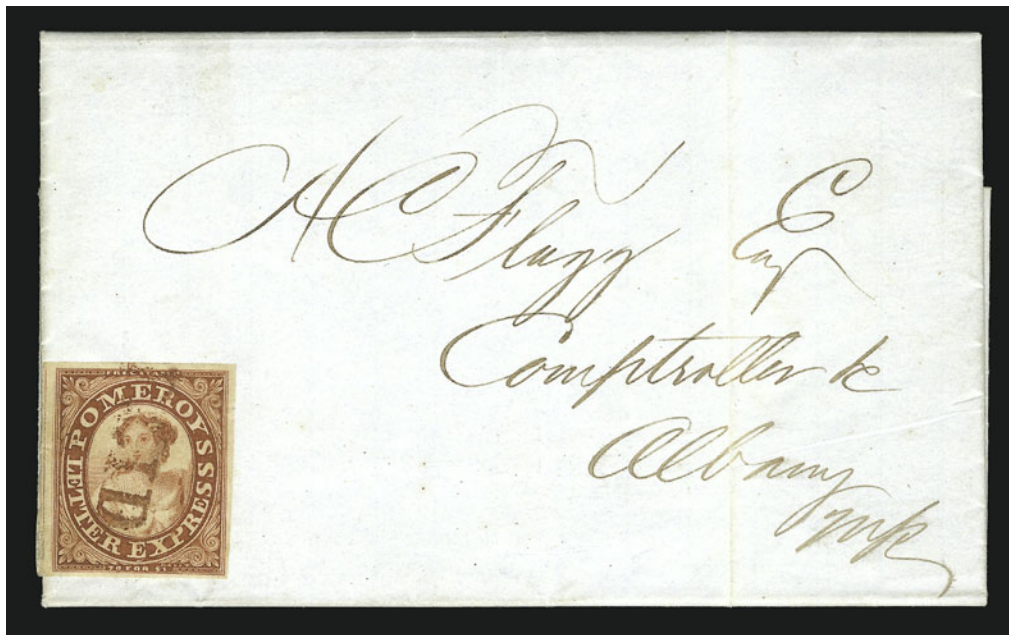 A C Flagg Esq
Comptroller &c
Albany
NY
POMEROY'S
LETTER EXPRESS
20 FOR $1
D